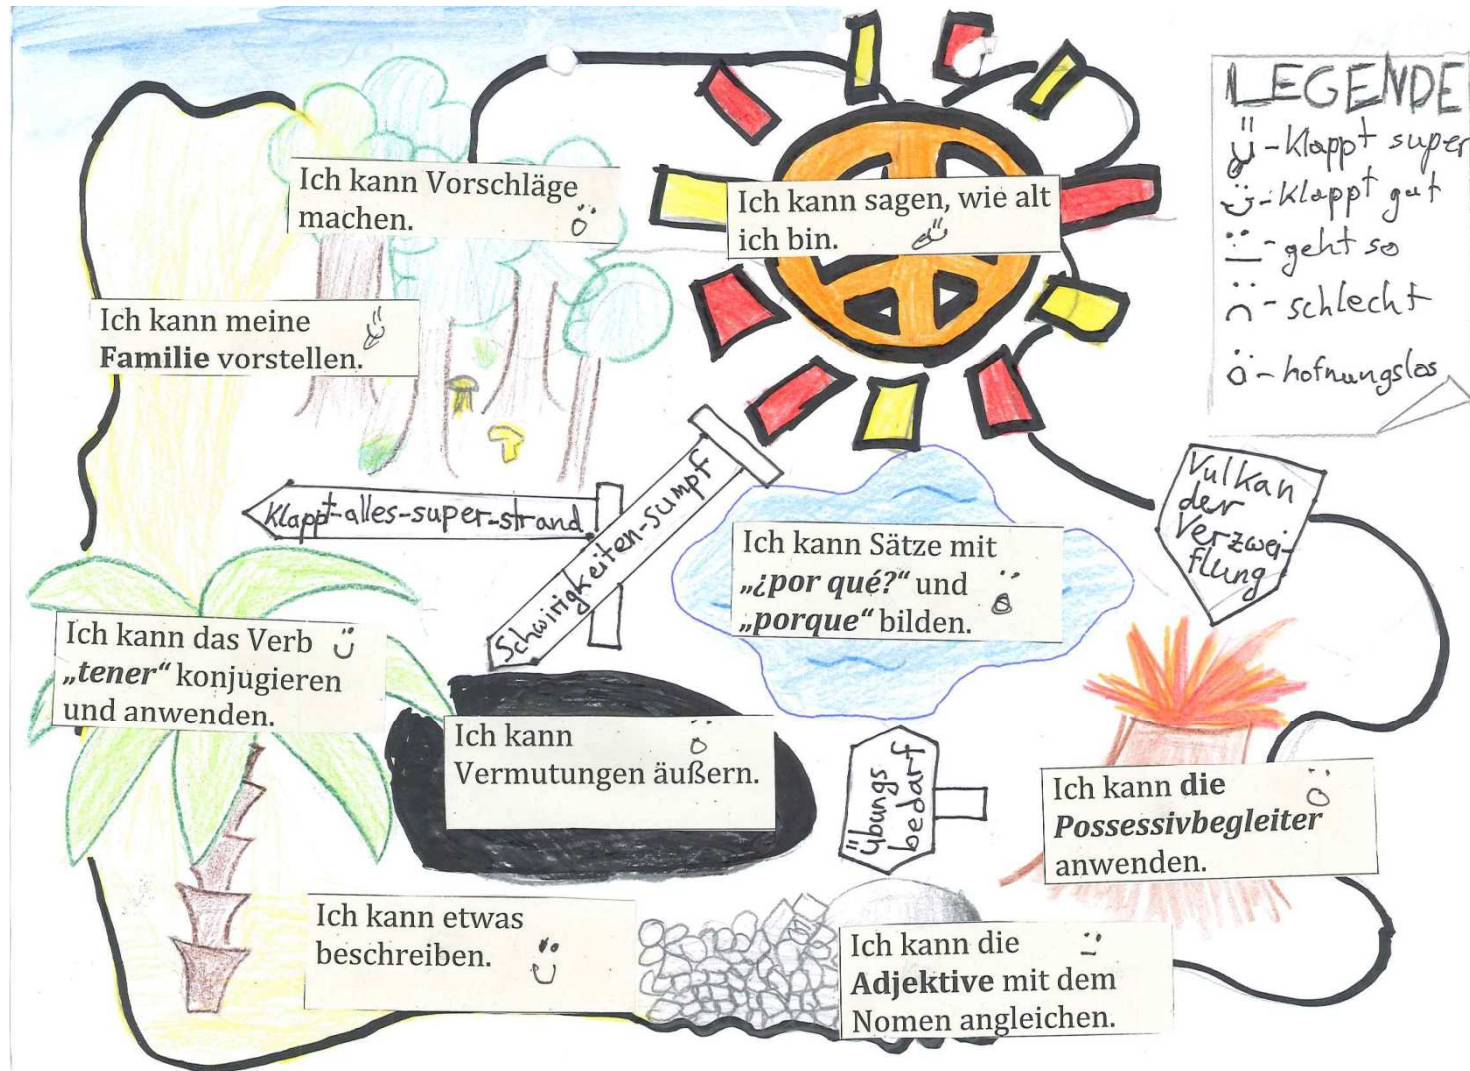 LEGENDE
- Klappt super
- Klappt gut
- geht so
- schlecht
- hofnungslos
Ich kann Vorschläge
machen.
Ich kann sagen, wie alt
ich bin.
Ich kann meine
Familie vorstellen.
Klappt-alles-super-strand
Schwirigkeiten-sumpf
Vulkan
der
Verzwei-
flung
Ich kann Sätze mit
„¿por qué?“ und
„porque“ bilden.
Ich kann das Verb
„tener“ konjugieren
und anwenden.
Ich kann
Vermutungen äußern.
Übungs
bedarf
Ich kann die
Possessivbegleiter
anwenden.
Ich kann etwas
beschreiben.
Ich kann die
Adjektive mit dem
Nomen angleichen.